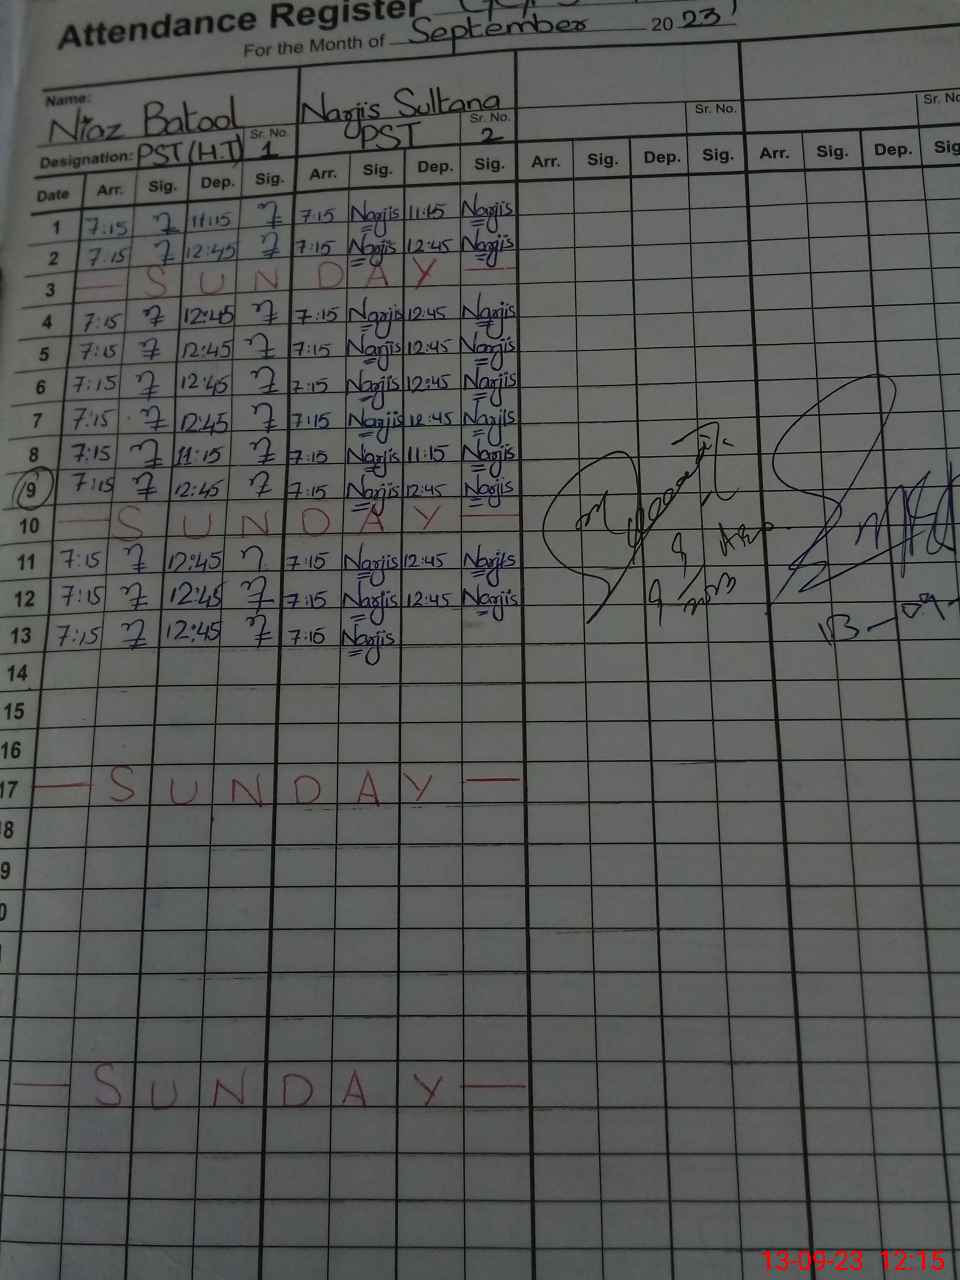 Attendance Register
For the Month of September 2023
Name: Niaz Batool Narjis Sultana
Designation: PST (H.T) Sr. No. 1 PST Sr. No. 2 Sr. No. Sr. No.
Date Arr. Sig. Dep. Sig. Arr. Sig. Dep. Sig. Arr. Sig. Dep. Sig. Arr. Sig. Dep. Sig
1 7:15 11:15 7:15 Narjis 11:15 Narjis
2 7:15 12:45 7:15 Narjis 12:45 Narjis
3 — SUNDAY —
4 7:15 12:45 7:15 Narjis 12:45 Narjis
5 7:15 12:45 7:15 Narjis 12:45 Narjis
6 7:15 12:45 7:15 Narjis 12:45 Narjis
7 7:15 12:45 7:15 Narjis 12:45 Narjis
8 7:15 11:15 7:15 Narjis 11:15 Narjis
9 7:15 12:45 7:15 Narjis 12:45 Narjis
10 — SUNDAY —
11 7:15 12:45 7:15 Narjis 12:45 Narjis
12 7:15 12:45 7:15 Narjis 12:45 Narjis
13 7:15 12:45 7:15 Narjis
14
15
16
17 — SUNDAY —
8
9
0
— SUNDAY —
13-09-23 12:15